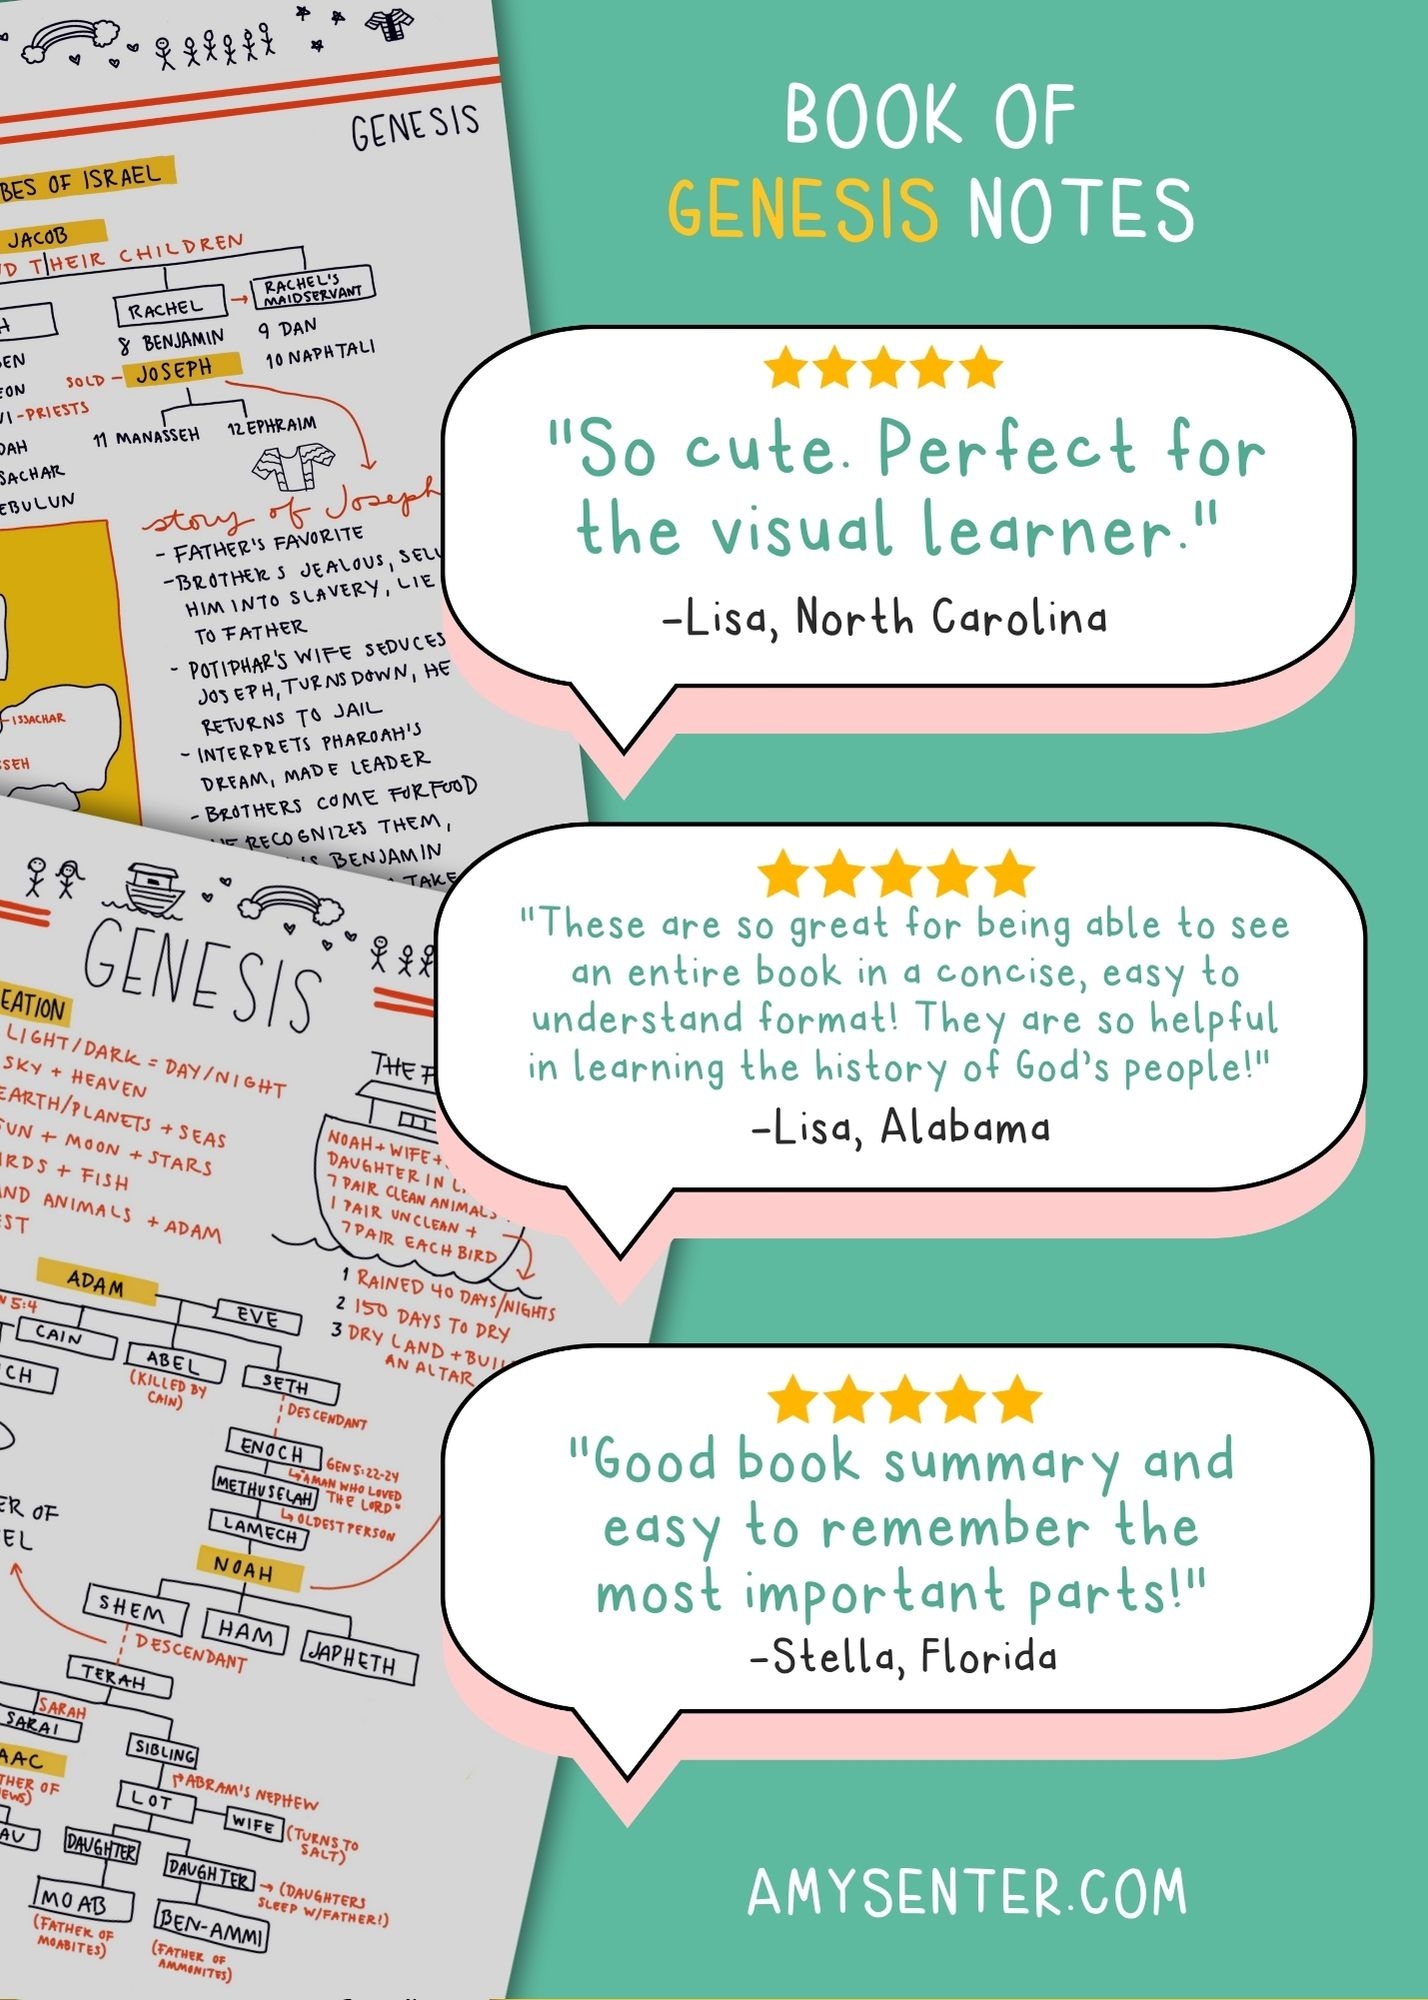 GENESIS
BES OF ISRAEL
JACOB
D THEIR CHILDREN
H
RACHEL
RACHEL'S
MAIDSERVANT
EN
8 BENJAMIN
9 DAN
EON
SOLD - JOSEPH
10 NAPHTALI
VI -PRIESTS
DAH
11 MANASSEH
12 EPHRAIM
SSACHAR
EBULUN
story of Joseph
- FATHER'S FAVORITE
-BROTHERS JEALOUS, SELL
HIM INTO SLAVERY, LIE
TO FATHER
- POTIPHAR'S WIFE SEDUCES
JOSEPH, TURNS DOWN, HE
RETURNS TO JAIL
- INTERPRETS PHAROAH'S
DREAM, MADE LEADER
- BROTHERS COME FOR FOOD
HE RECOGNIZES THEM,
BENJAMIN
TAKE
-ISSACHAR
SSEH
GENESIS
EATION
LIGHT/DARK = DAY/NIGHT
SKY + HEAVEN
EARTH/PLANETS + SEAS
UN + MOON + STARS
IRDS + FISH
ND ANIMALS + ADAM
EST
THE F
NOAH + WIFE +
DAUGHTER IN L
7 PAIR CLEAN ANIMALS
1 PAIR UNCLEAN +
7 PAIR EACH BIRD
1 RAINED 40 DAYS/NIGHTS
2 150 DAYS TO DRY
3 DRY LAND + BUIL
AN ALTAR
ADAM
EVE
N 5:4
CAIN
ABEL
(KILLED BY
CAIN)
SETH
CH
DESCENDANT
ENOCH
GEN 5:22-24
"A MAN WHO LOVED
THE LORD"
METHUSELAH
OLDEST PERSON
LAMECH
ER OF
EL
NOAH
SHEM
HAM
JAPHETH
DESCENDANT
TERAH
SARAH
SARAI
SIBLING
AAC
THER OF
EWS)
ABRAM'S NEPHEW
LOT
WIFE
(TURNS TO
SALT)
AU
DAUGHTER
DAUGHTER
(DAUGHTERS
SLEEP W/FATHER!)
MOAB
(FATHER OF
MOABITES)
BEN-AMMI
(FATHER OF
AMMONITES)
BOOK OF
GENESIS NOTES
"So cute. Perfect for
the visual learner."
-Lisa, North Carolina
"These are so great for being able to see
an entire book in a concise, easy to
understand format! They are so helpful
in learning the history of God's people!"
-Lisa, Alabama
"Good book summary and
easy to remember the
most important parts!"
-Stella, Florida
AMYSENTER.COM